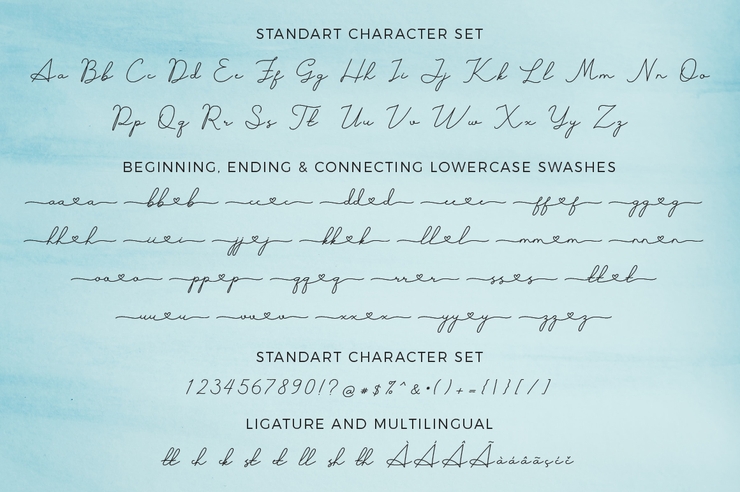 STANDART CHARACTER SET
Aa Bb Cc Dd Ee Ff Gg Hh Ii Jj Kk Ll Mm Nn Oo
Pp Qq Rr Ss Tt Uu Vv Ww Xx Yy Zz
BEGINNING, ENDING & CONNECTING LOWERCASE SWASHES
aa♡a bb♡b cc♡c dd♡d ee♡e ff♡f gg♡g
hh♡h ii♡i jj♡j kk♡k ll♡l mm♡m nn♡n
oo♡o pp♡p qq♡q rr♡r ss♡s tt♡t
uu♡u vv♡v xx♡x yy♡y zz♡z
STANDART CHARACTER SET
1234567890!?@#$%^&*()+={|\}[/]
LIGATURE AND MULTILINGUAL
tt ch ck st ct ll sh th ÀÁÂÃàáâãçíč